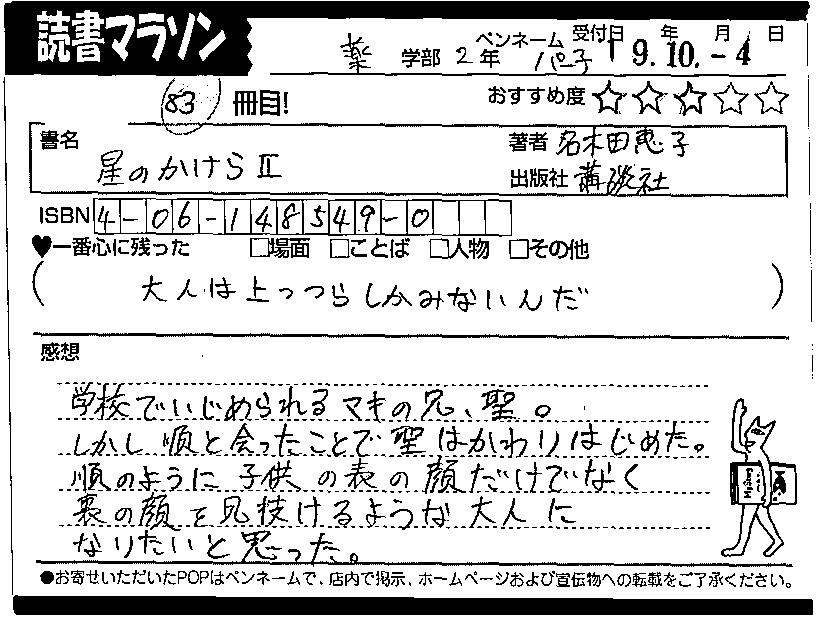 読書マラソン
薬 学部 2年 ペンネーム パ子 受付日 年 月 日
19.10.-4
83 冊目! おすすめ度 ☆☆☆☆☆
書名 星のかけらⅡ
著者 名木田恵子
出版社 講談社
ISBN 4-06-148549-0
♥一番心に残った □場面 □ことば □人物 □その他
( 大人は上っつらしかみないんだ )
感想
学校でいじめられるマキの兄、聖。
しかし順と会ったことで聖はかわりはじめた。
順のように子供の表の顔だけでなく
裏の顔を見抜けるような大人に
なりたいと思った。
●お寄せいただいたPOPはペンネームで、店内で掲示、ホームページおよび宣伝物への転載をご了承ください。